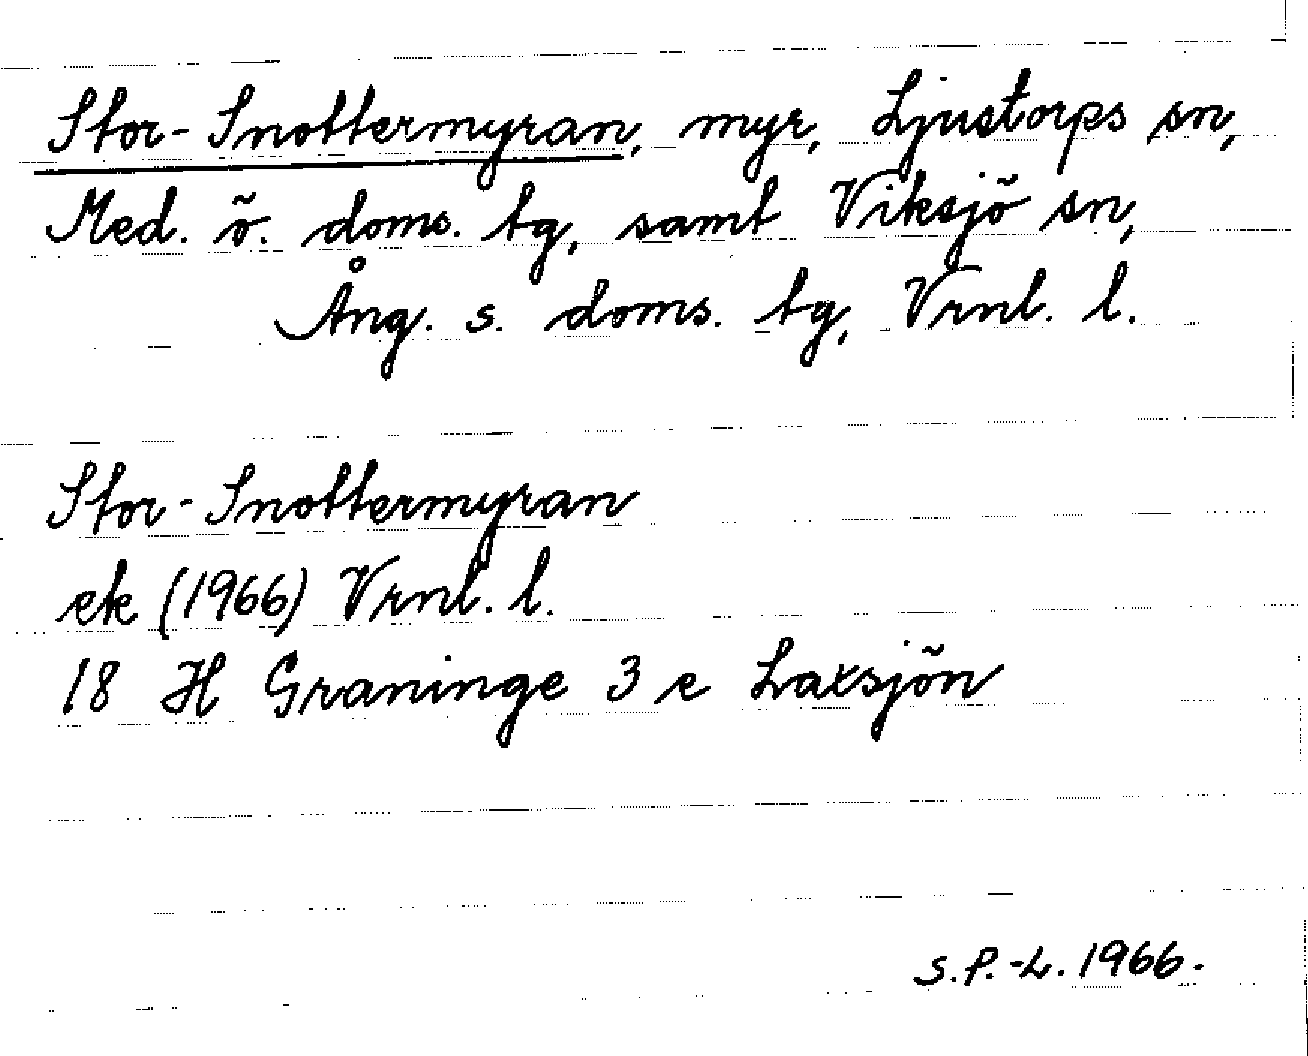 Stor-Snottermyran, myr, Ljustorps sn,
Med. ö. doms. tg, samt Viksjö sn,
Ång. s. doms. tg, Vrnl. l.
Stor-Snottermyran
ek (1966) Vrnl. l.
18 H Graninge 3 e Laxsjön
S.P.-L. 1966.